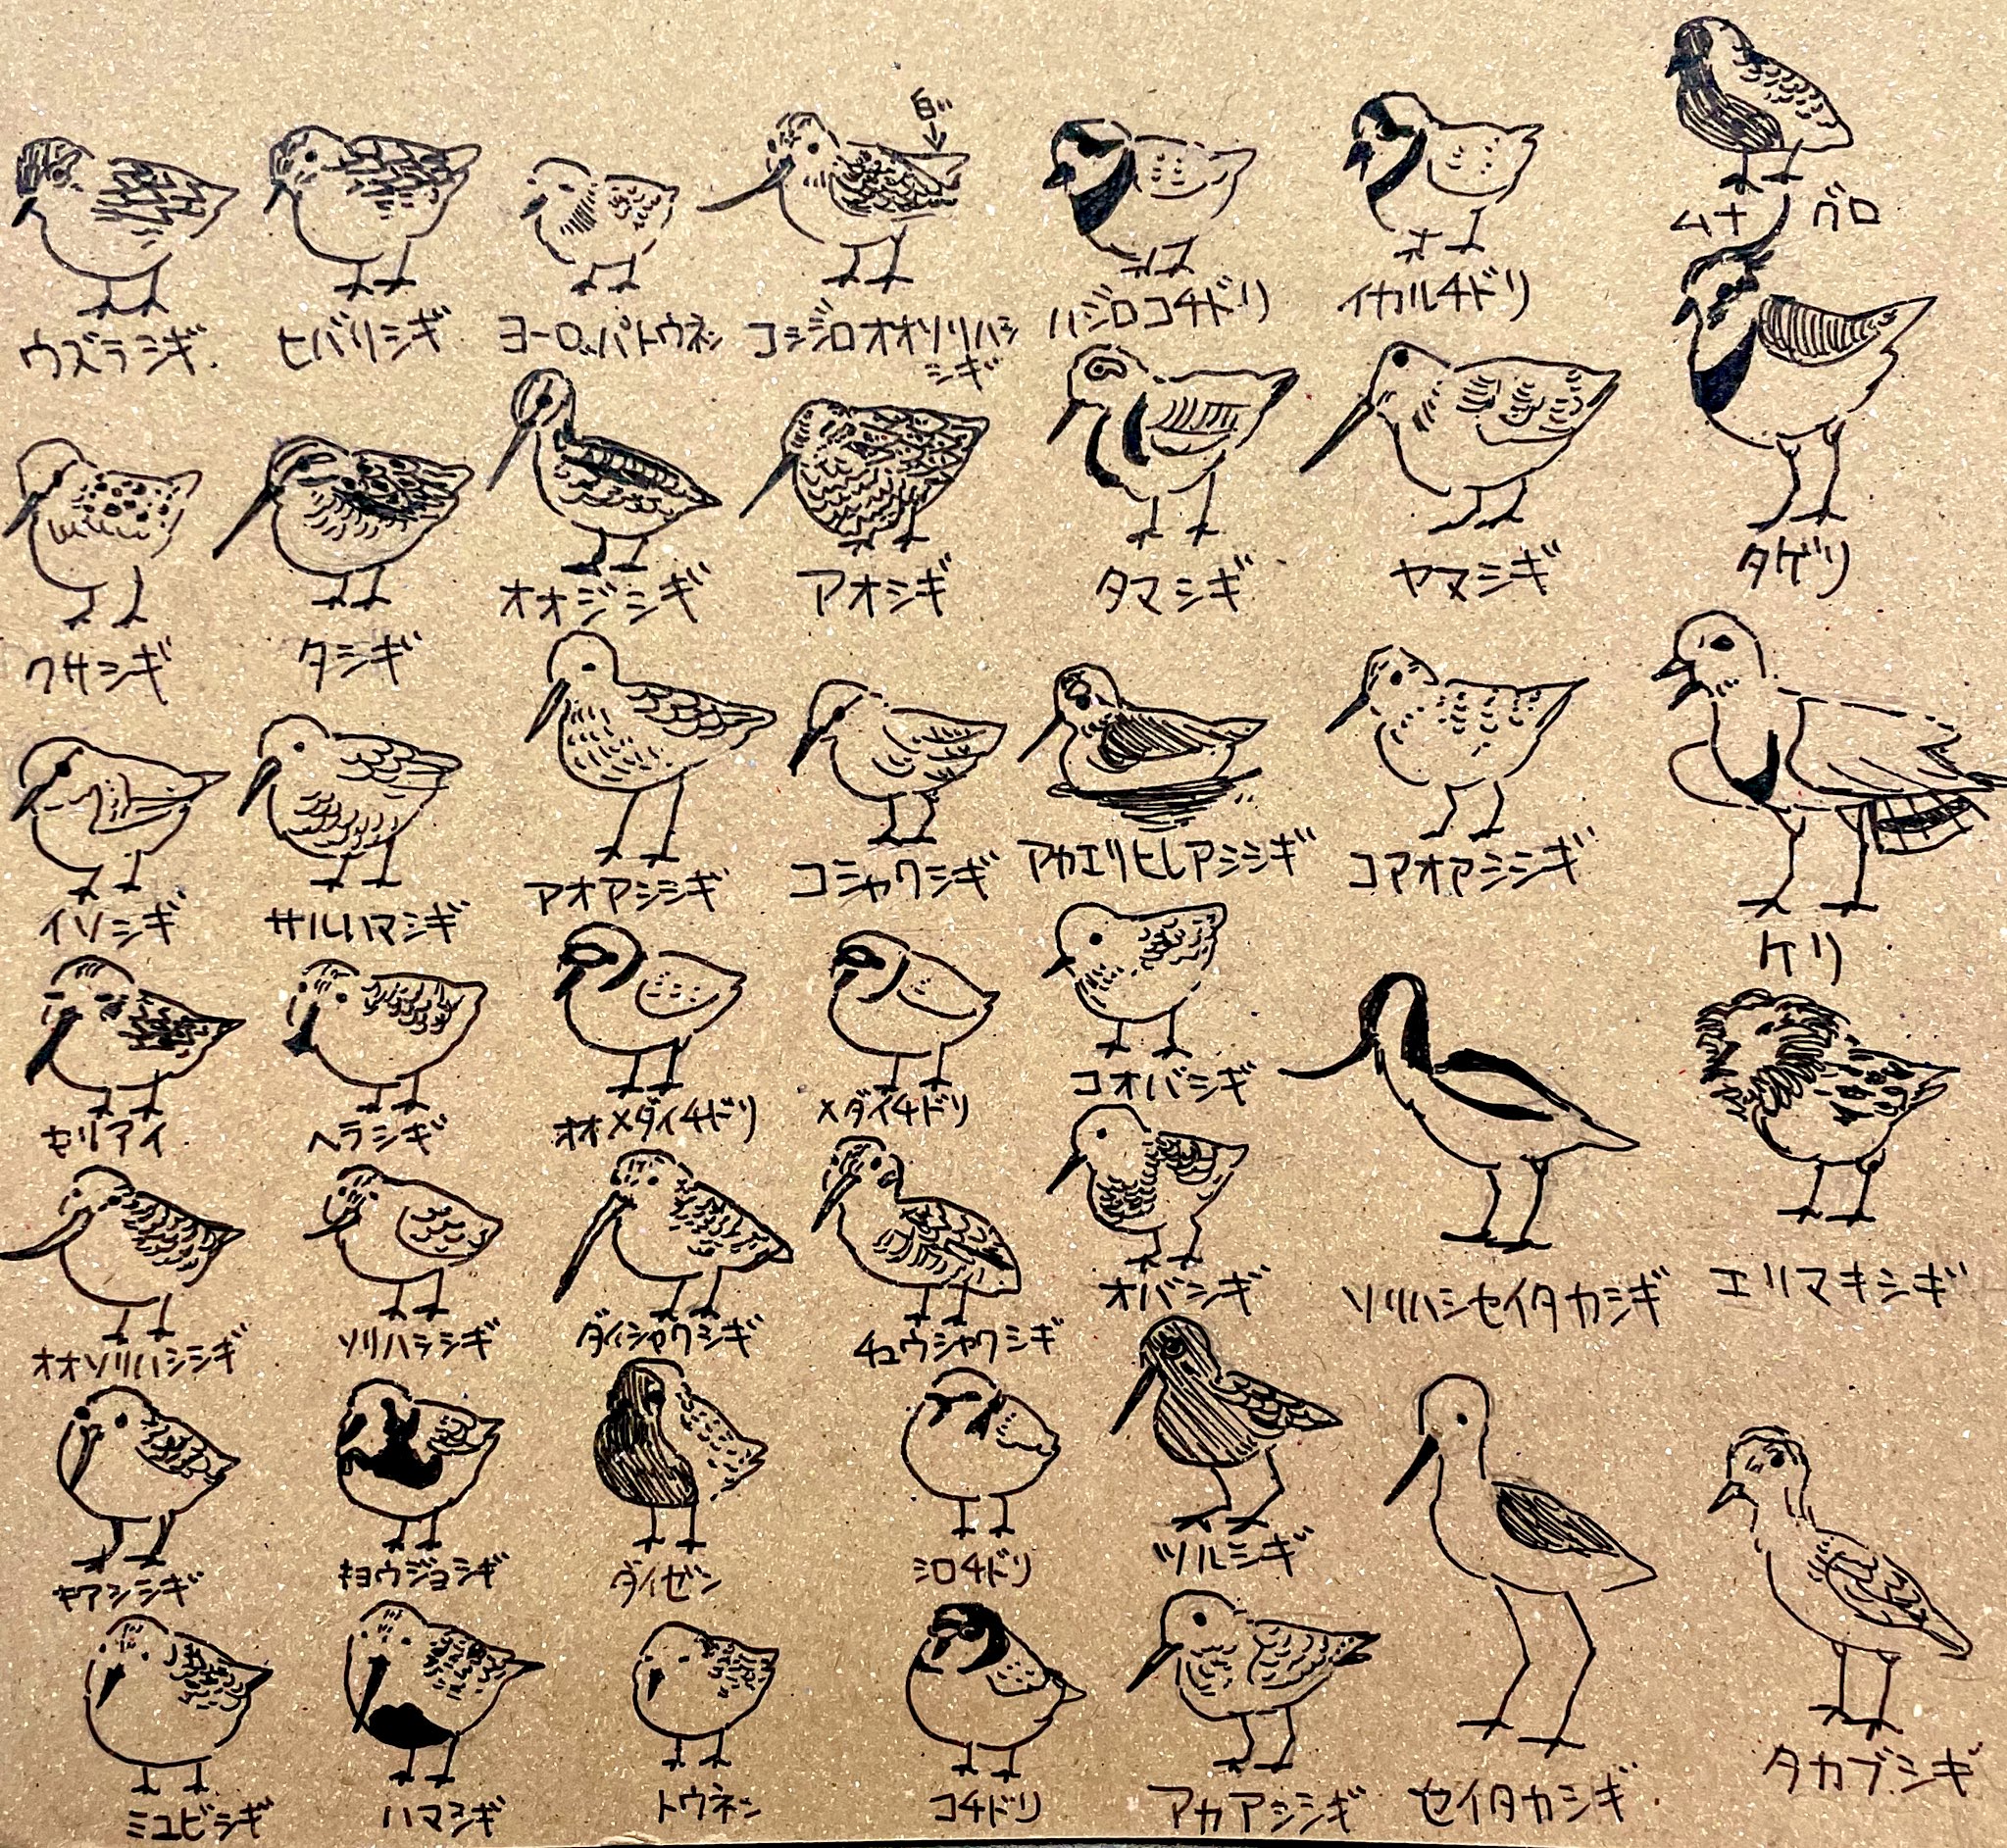 白い
ムナグロ
ウズラシギ
ヒバリシギ
ヨーロッパトウネン
コシジロオオソリハシ
シギ
ハジロコチドリ
イカルチドリ
クサシギ
タシギ
オオジシギ
アオシギ
タマシギ
ヤマシギ
タゲリ
イソシギ
サルハマシギ
アオアシシギ
コシャクシギ
アカエリヒレアシシギ
コアオアシシギ
ケリ
キリアイ
ヘラシギ
オオメダイチドリ
メダイチドリ
コオバシギ
オオソリハシシギ
ソリハシシギ
ダイシャクシギ
チュウシャクシギ
オバシギ
ソリハシセイタカシギ
エリマキシギ
キアシシギ
キョウジョシギ
ダイゼン
シロチドリ
ツルシギ
ミユビシギ
ハマシギ
トウネン
コチドリ
アカアシシギ
セイタカシギ
タカブシギ